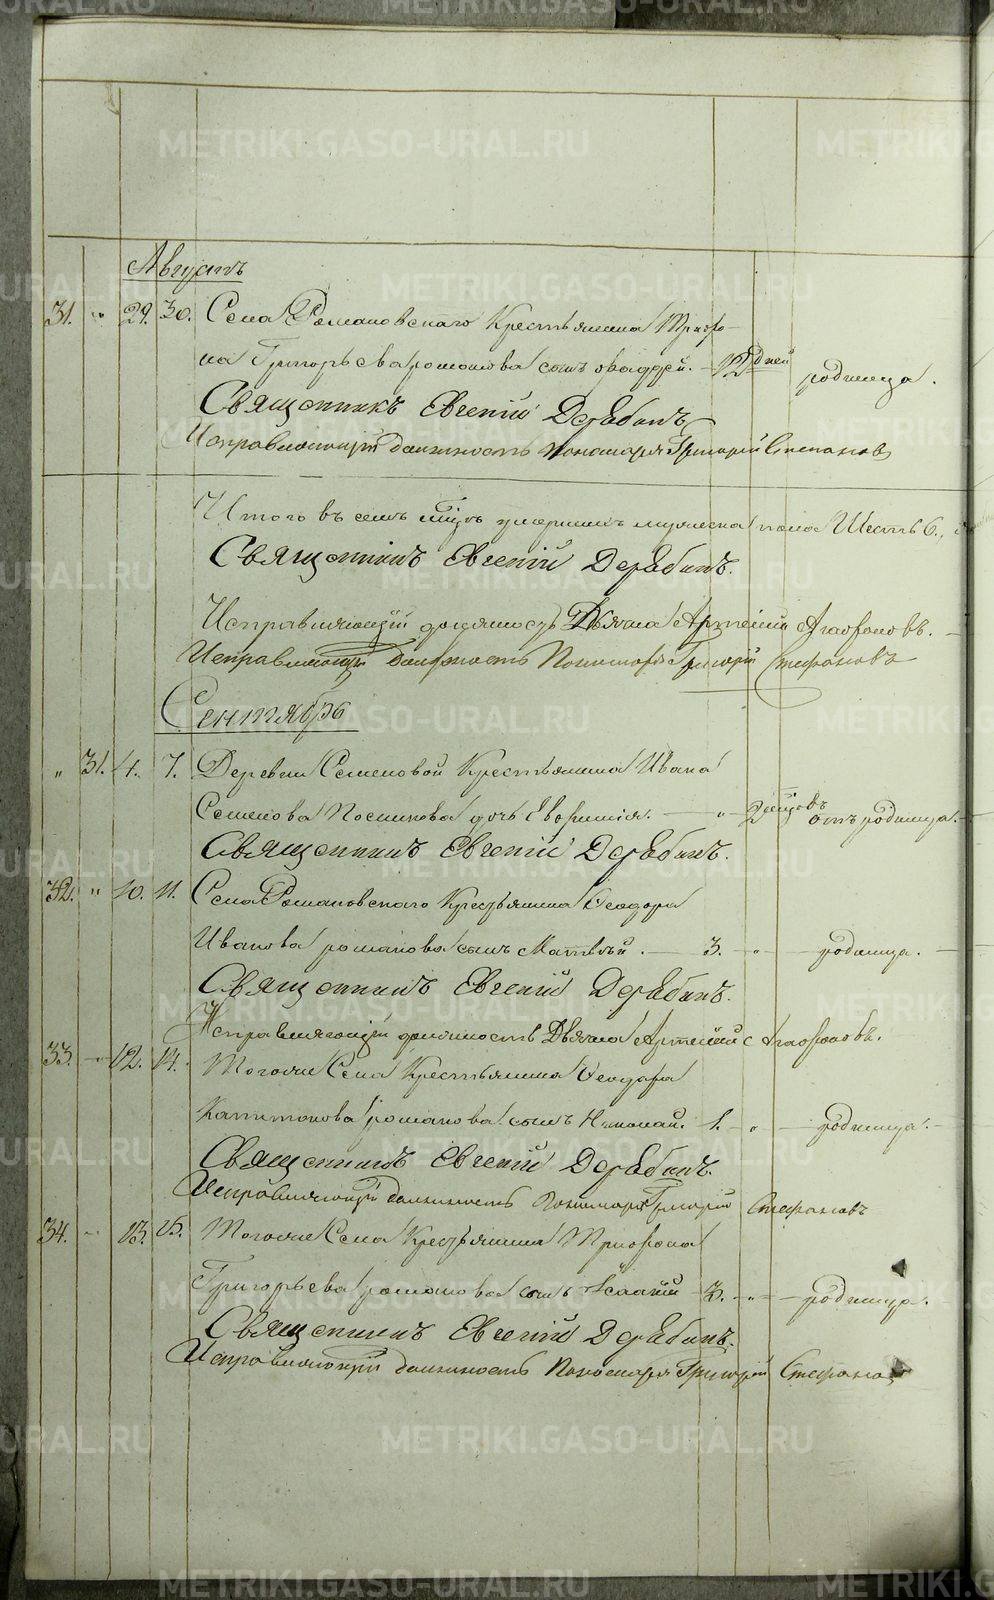 Августъ
31. " 29. 30. Села Романовскаго Крестьянина Трифо-
на Григорьева Романова сынъ Фаддей. — 12 дней родимца.
Священникъ Евгений Дерябинъ
Исправляющий должность пономаря Григорий Стефановъ
Итого въ семъ умершихъ мужеска пола Шесть 6.,
Священникъ Евгений Дерябинъ.
Исправляющий должность Дьячка Агафоновъ. —
Исправляющий должность Пономаря Григорий Стефановъ
Сентябрь
" 31. 4. 7. Деревни Семеновой Крестьянина Ивана
Семенова Посникова дочь Евфимия. — " 2 отъ родимца. —
Священникъ Евгений Дерябинъ.
32. " 10. 11. Села Романовскаго Крестьянина Феодора
Иванова Романова сынъ Матвей. — 3. — " — родимца. —
Священникъ Евгений Дерябинъ.
Исправляющий должность Дьячка Агафоновъ.
33. — 12. 14. Тогоже Села Крестьянина Феодора
Капитонова Романова сынъ Николай. 1. — " — родимца. —
Священникъ Евгений Дерябинъ.
Исправляющий должность Пономаря Григорий Стефановъ
34. — 13. 15. Тогоже Села Крестьянина Трифона
Григорьева Романова сынъ 3. — " — родимца.
Священникъ Евгений Дерябинъ.
Исправляющий должность Пономаря Григорий Стефановъ
METRIKI.GASO-URAL.RU